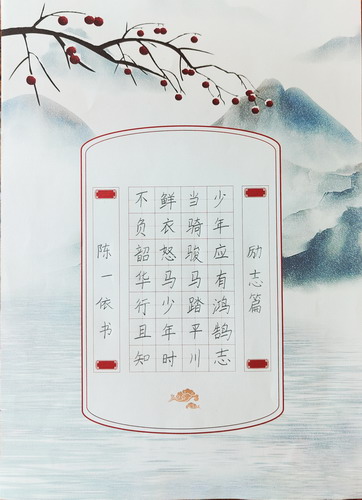 励志篇
少年应有鸿鹄志
当骑骏马踏平川
鲜衣怒马少年时
不负韶华行且知
陈一依书